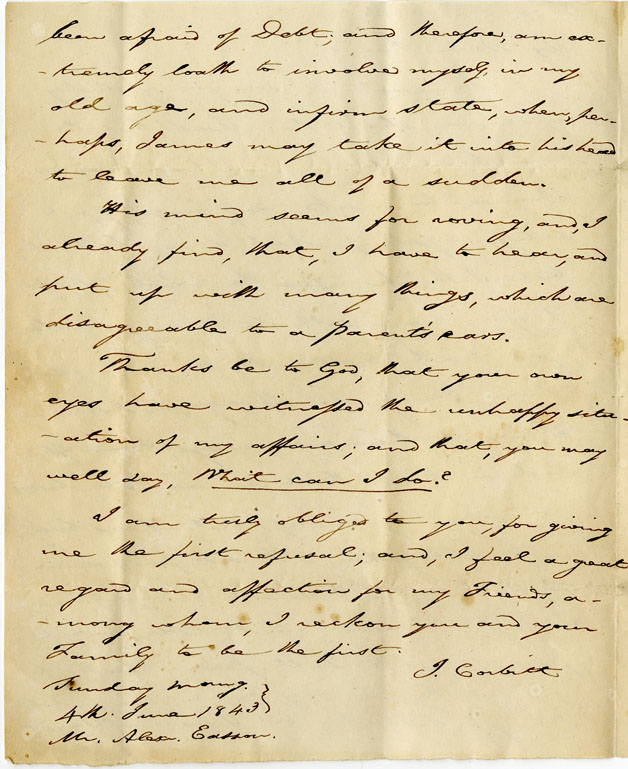 been afraid of Debt; and therefore, am ex-
-tremely loath to involve myself, in my
old age, and infirm state, when, per-
-haps, James may take it into his head
to leave me all of a sudden.
His mind seems for roving, and, I
already find, that, I have to hear, and
put up with many things, which are
disagreeable to a Parent's ears.
Thanks be to God, that your own
eyes have witnessed the unhappy situ-
-ation of my affairs; and that, you may
well say, What can I do?
I am truly obliged to you, for giving
me the first refusal; and, I feel a great
regard and affection for my Friends, a-
-mong whom, I reckon you and your
Family to be the first.
J. Corbitt
Sunday morng.
4th. June 1843
Mr. Alexr. Easson.